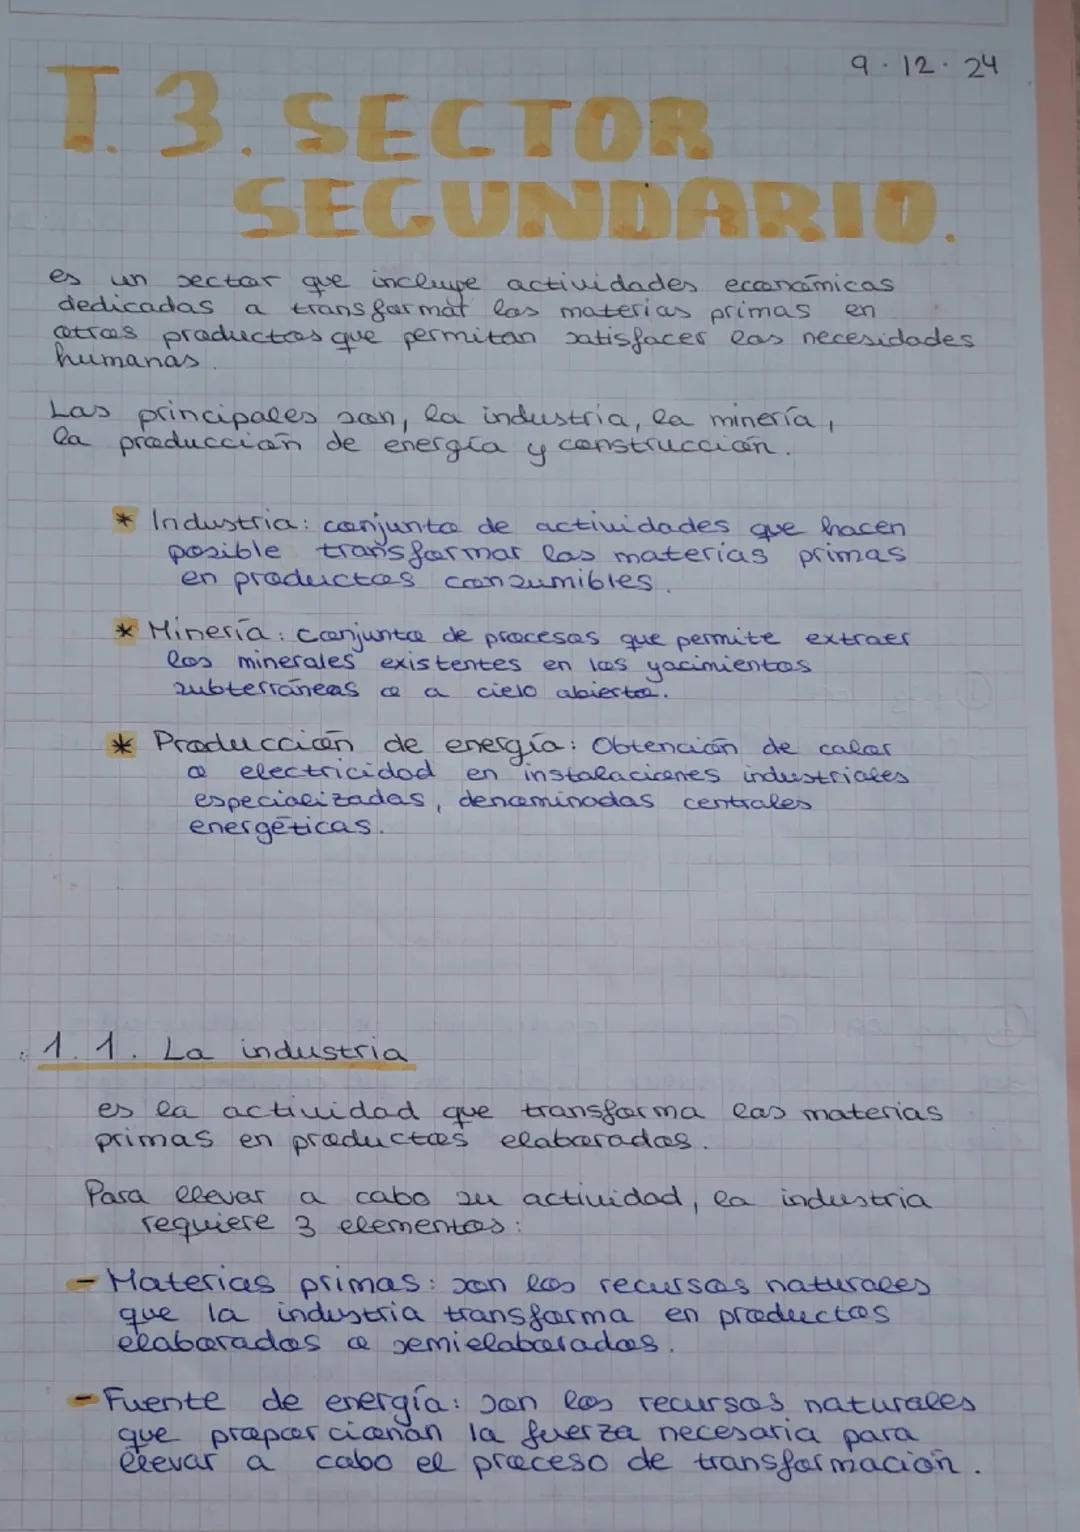 9.12.24
T.3. SECTOR
SEGUNDARIO.
es un sector que incluye actividades económicas
dedicadas a transformar las materias primas en
otros productos que permitan satisfacer las necesidades
humanas.
Las principales son, la industria, la minería,
la producción de energía y construcción.
* Industria: conjunto de actividades que hacen
posible transformar las materias primas
en productos consumibles.
* Minería: conjunto de procesos que permite extraer
los minerales existentes en los yacimientos
subterráneos o a cielo abierto.
* Producción de energía: Obtención de calor
o electricidad en instalaciones industriales
especializadas, denominadas centrales
energéticas.
1.1. La industria
es la actividad que transforma las materias
primas en productos elaborados.
Para llevar a cabo su actividad, la industria
requiere 3 elementos:
- Materias primas: son los recursos naturales
que la industria transforma en productos
elaborados o semielaborados.
- Fuente de energía: son los recursos naturales
que proporcionan la fuerza necesaria para
llevar a cabo el proceso de transformación.